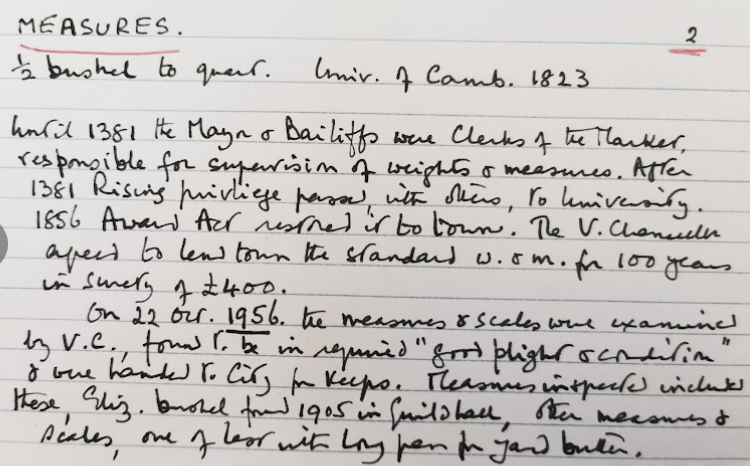 MEASURES. 2
½ bushel to quart. Univ. of Camb. 1823
Until 1381 the Mayor & Bailiffs were Clerks of the Market,
responsible for supervision of weights & measures. After
1381 Rising privilege passed, with others, to University.
1856 Award Act restored it to town. The V. Chancellor
agreed to lend town the standard w. & m. for 100 years
in surety of £400.
On 22 Oct. 1956. the measures & scales were examined
by V.C., found to be in required "good plight & condition"
& were handed to City for keeps. Measures inspected included
these, Eliz. bushel found 1905 in Guildhall, other measures &
scales, one of last with long pan for yard butter.